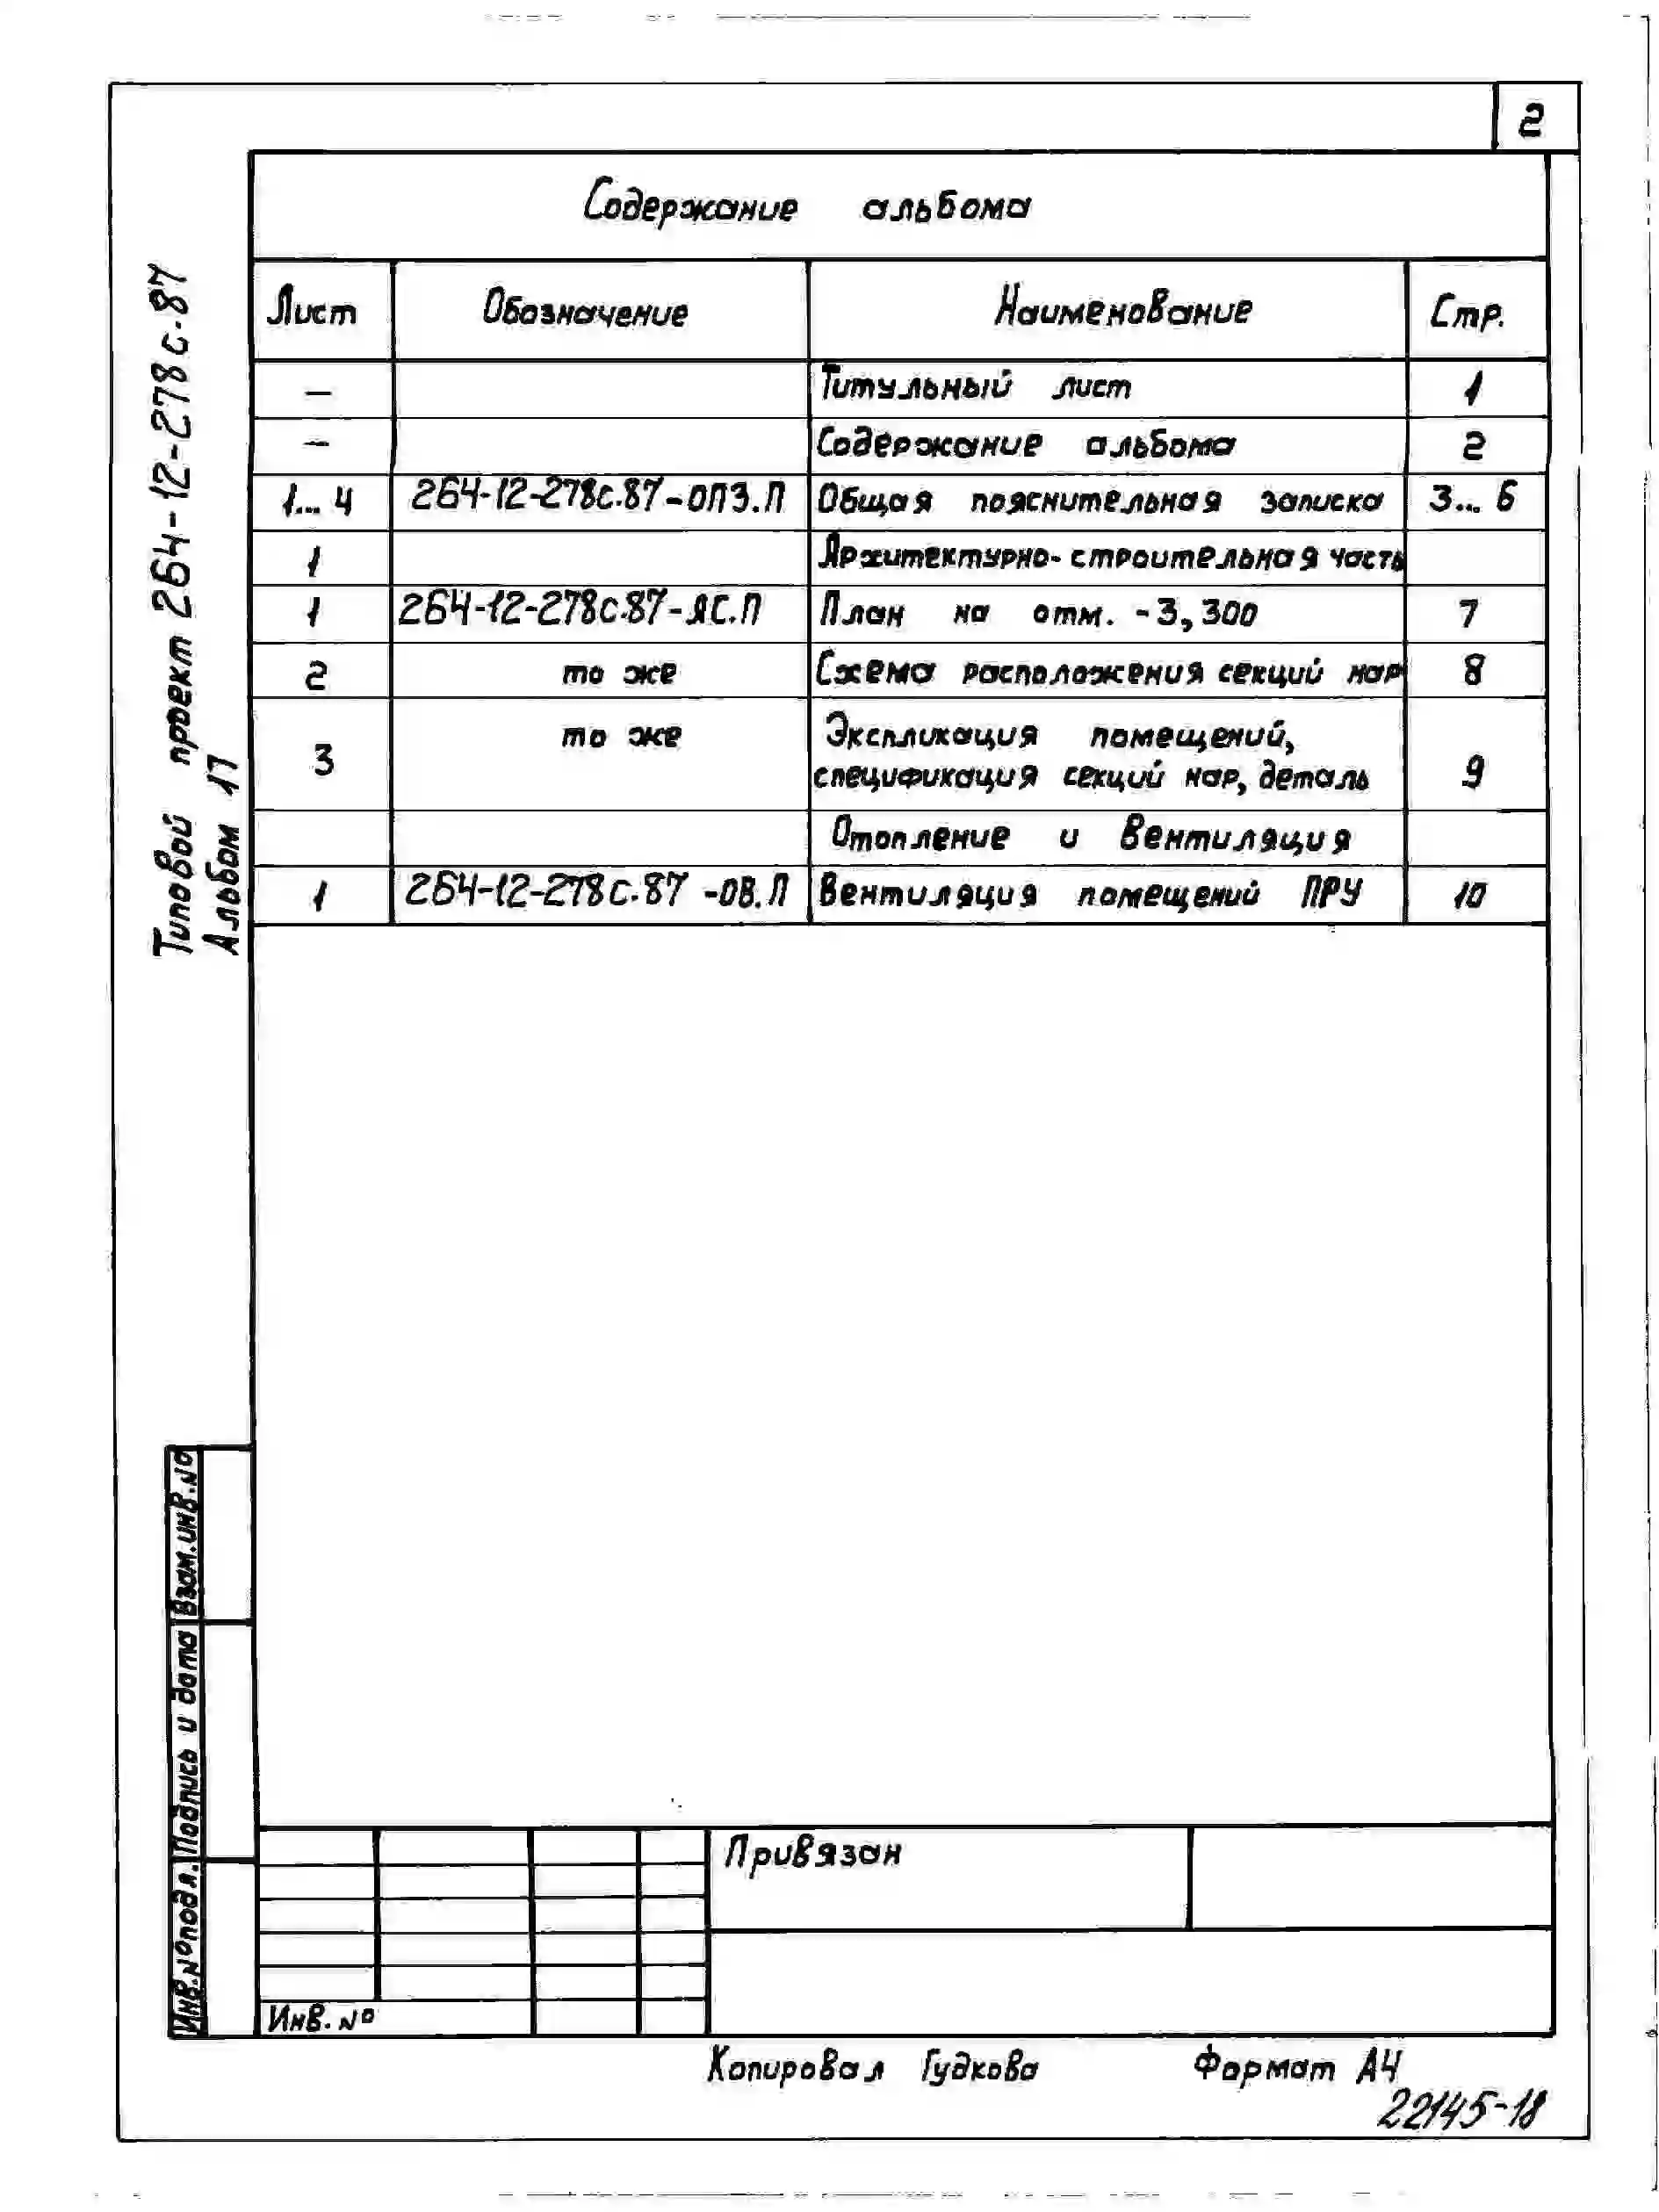 2
Содержание альбома
Лист Обозначение Наименование Стр.
– Титульный лист 1
– Содержание альбома 2
1... 4 264-12-278с.87-ОПЗ.П Общая пояснительная записка 3... 6
1 Архитектурно-строительная часть
1 264-12-278с.87-АС.П План на отм. -3,300 7
2 то же Схема расположения секций нар 8
3 то же Экспликация помещений,
спецификация секций нар, деталь 9
Отопление и вентиляция
1 264-12-278с.87-ОВ.П Вентиляция помещений ПРУ 10
Типовой проект 264-12-278с.87
Альбом 17
Взам.инв.№
Подпись и дата
Инв.№подл.
Привязан
Инв.№
Копировал Гудкова Формат А4
22145-18